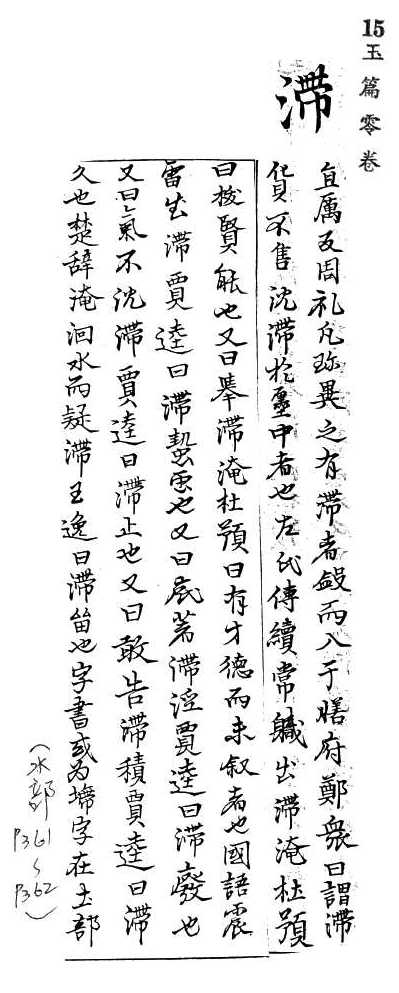 15玉篇零卷
滯
直厲反周礼凡珎異之有滯者斂而入于膳府鄭衆曰謂滯
貨不售沈滯於廛中者也左氏傳續常軄出滯淹杜預
曰拔賢能也又曰舉滯淹杜預曰有才德而未叙者也國語震
雷出滯賈逵曰滯蟄虫也又曰底著滯淫賈逵曰滯廢也
又曰氣不沈滯賈逵曰滯止也又曰敢告滯積賈逵曰滯
久也楚辭淹洄水而疑滯王逸曰滯留也字書或為墆字在土部
(水部
P361
~
P362)